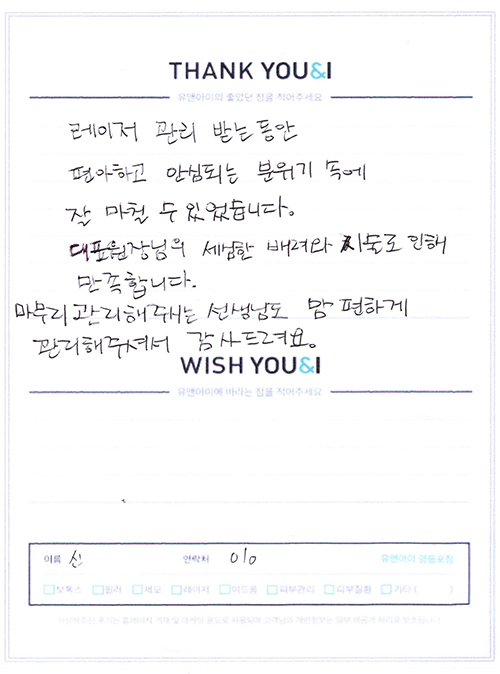 THANK YOU&I
유앤아이의 좋았던 점을 적어주세요
레이저 관리 받는동안
편아하고 안심되는 분위기 속에
잘 마칠 수 있었습니다.
대표원장님의 세심한 배려와 시술로 인해
만족합니다.
마무리 관리해주시는 선생님도 맘 편하게
관리해주셔서 감사드려요.
WISH YOU&I
유앤아이에 바라는 점을 적어주세요
이름 신 연락처 010 유앤아이 영등포점
보톡스 필러 제모 레이저 여드름 피부관리 피부질환 기타 ( )